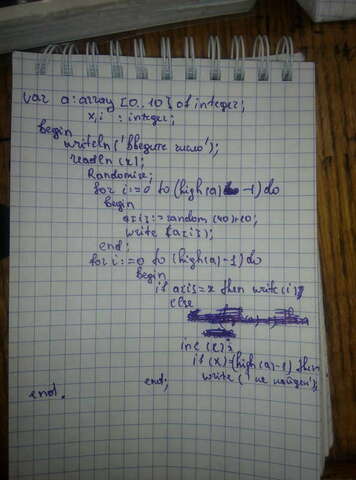 var a: array [0..10] of integer;
x,i : integer;
begin
writeln ('Введите число');
readln (x);
Randomize;
for i:=0 to (high(a) -1) do
begin
a[i]:=random (40)+10;
write (a[i]);
end;
for i:=0 to (high(a)-1) do
begin
if a[i]=x then write(i)
else
inc (x);
if (x)=(high(a)-1) then
write ('не найден');
end;
end.